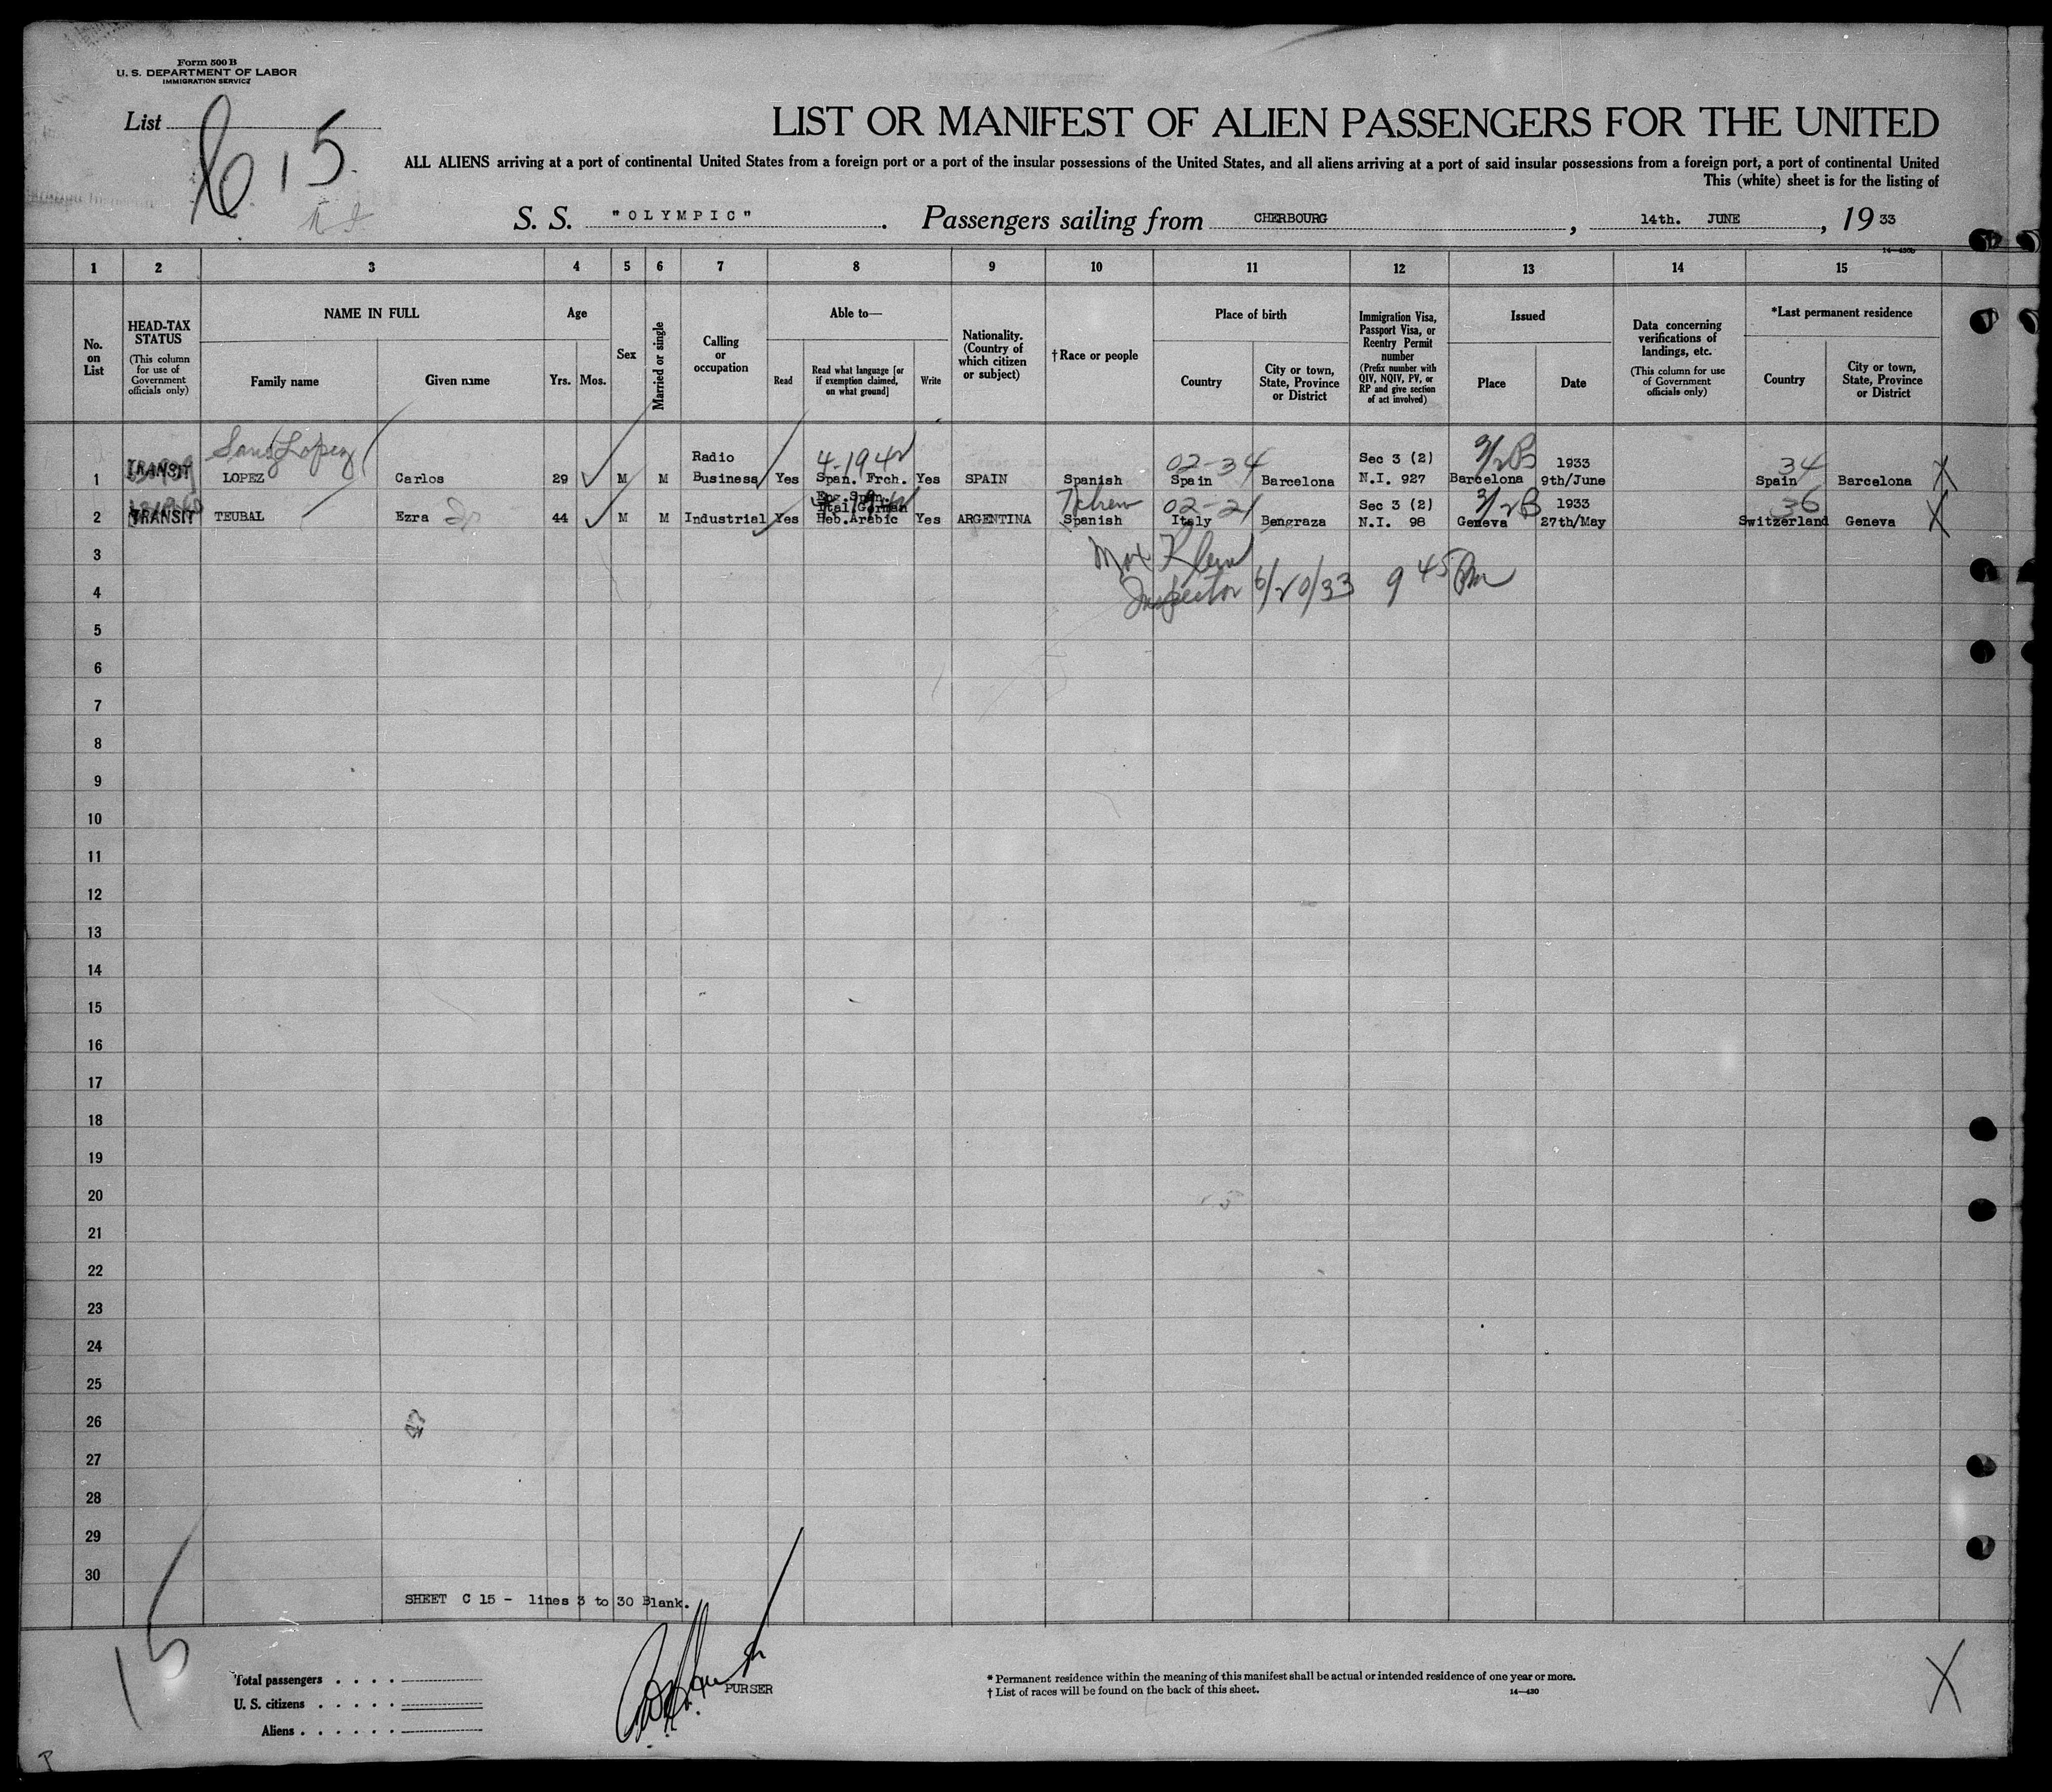 Form 500 B
U. S. DEPARTMENT OF LABOR
IMMIGRATION SERVICE
List C 15
LIST OR MANIFEST OF ALIEN PASSENGERS FOR THE UNITED
ALL ALIENS arriving at a port of continental United States from a foreign port or a port of the insular possessions of the United States, and all aliens arriving at a port of said insular possessions from a foreign port, a port of continental United
This (white) sheet is for the listing of
S. S. "OLYMPIC". Passengers sailing from CHERBOURG, 14th. JUNE, 19 33
14—430b
1 2 3 4 5 6 7 8 9 10 11 12 13 14 15
No. on List
HEAD-TAX STATUS (This column for use of Government officials only)
NAME IN FULL
Family name
Given name
Age
Yrs. Mos.
Sex
Married or single
Calling or occupation
Able to—
Read
Read what language [or if exemption claimed, on what ground]
Write
Nationality. (Country of which citizen or subject)
†Race or people
Place of birth
Country
City or town, State, Province or District
Immigration Visa, Passport Visa, or Reentry Permit number (Prefix number with QIV, NQIV, PV, or RP and give section of act involved)
Issued
Place
Date
Data concerning verifications of landings, etc. (This column for use of Government officials only)
*Last permanent residence
Country
City or town, State, Province or District
Lopez 4-1942 02-34 3/2B 34
Radio Sec 3 (2) 1933
1 TRANSIT LOPEZ Carlos 29 M M Business Yes Span. Frch. Yes SPAIN Spanish Spain Barcelona N.I. 927 Barcelona 9th/June Spain Barcelona X
Eng. Span. Ital. German 02-21 Sec 3 (2) 3/2B 1933 36
2 TRANSIT TEUBAL Ezra 44 M M Industrial Yes Heb. Arabic Yes ARGENTINA Spanish Italy Bengraza N.I. 98 Geneva 27th/May Switzerland Geneva X
3 Max Klein
4 Inspector 6/20/33 9 45 Pm
5
6
7
8
9
10
11
12
13
14
15
16
17
18
19
20
21
22
23
24
25
26
27
28
29
30
SHEET C 15 - lines 3 to 30 Blank.
15
PURSER
Total passengers
U. S. citizens
Aliens
* Permanent residence within the meaning of this manifest shall be actual or intended residence of one year or more.
† List of races will be found on the back of this sheet.
14—430
X